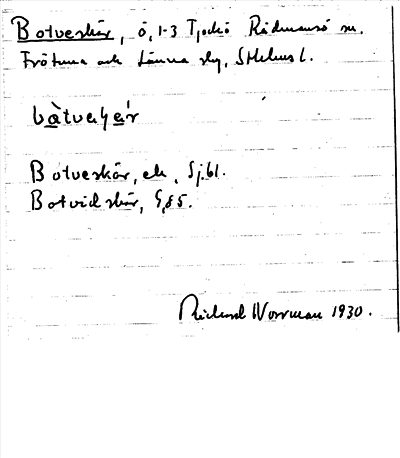 Botveskär, ö, 1-3 Tjockö Rådmansö sn.
Frötuna och Länna sky, Sthlms l.
bàtveʃǽr
Botveskär, ek, Sjkl.
Botvidskär, G,85.
Rickard Worrman 1930.